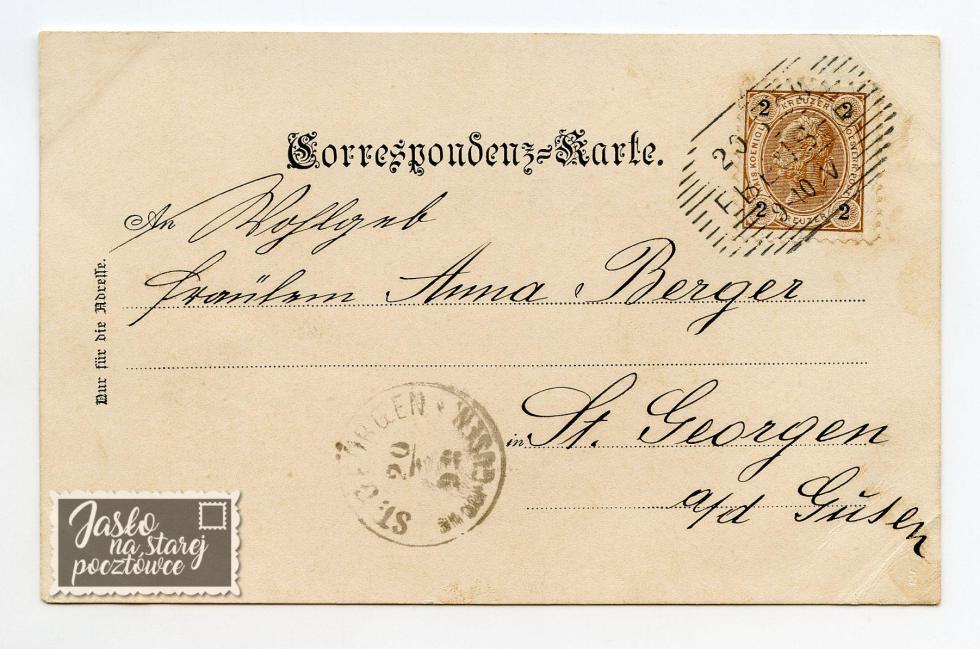 Correspondenz=Karte.
An Wohlgeb
Fräulein Anna Berger
in St. Georgen
a/d Gusen
Nur für die Adresse.
2 KREUZER 2
2 KREUZER 2
ST. GEORGEN
GUSEN
20
Jasło
na starej
pocztówce